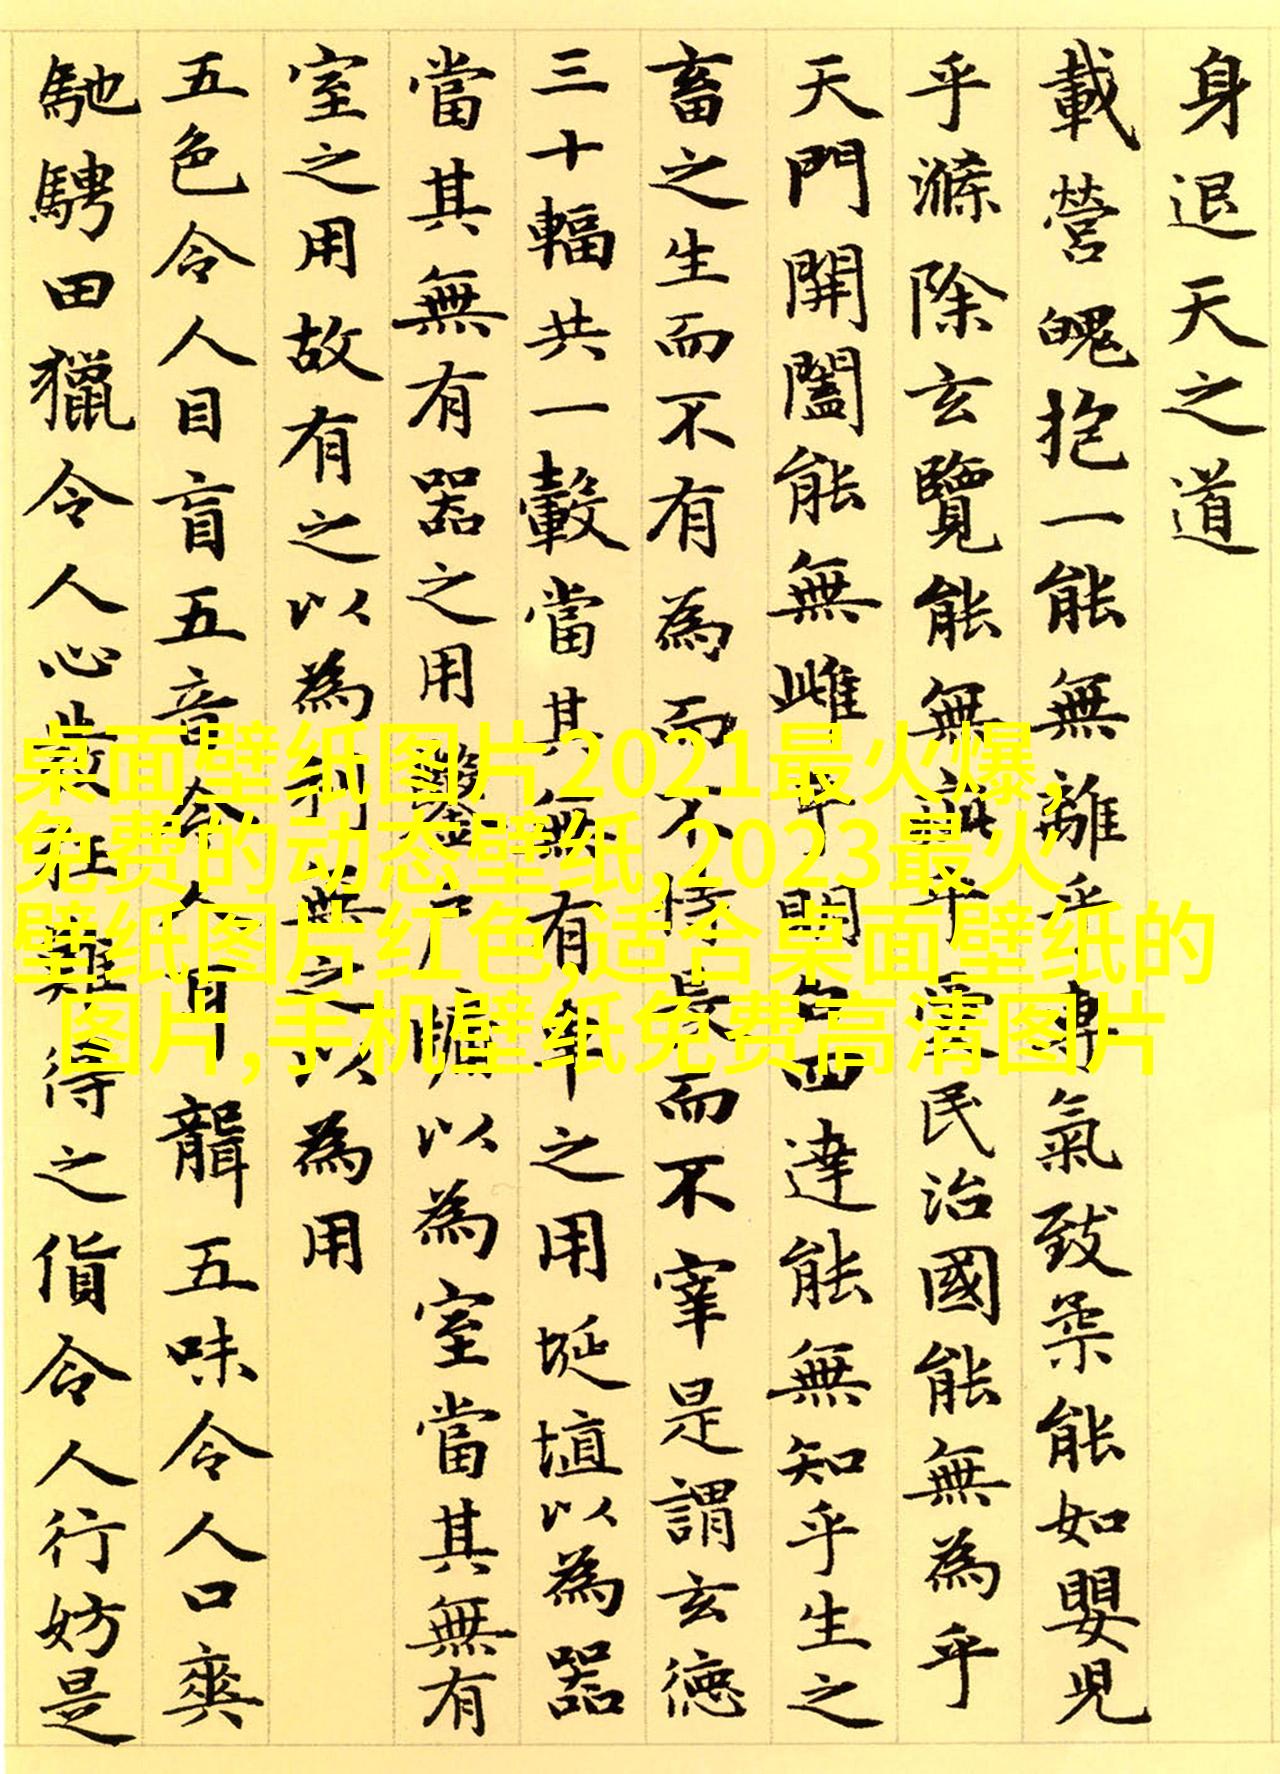 身退天之道
載營魄抱一能無離乎專氣致柔能如嬰児
乎滌除玄覽能無疵乎愛民治國能無為乎
天門開闔能無雌乎明白四達能無知乎生之
畜之生而不有為而不恃長而不宰是謂玄德
三十輻共一轂當其無有車之用埏埴以為器
當其無有器之用鑿戶牖以為室當其無有
室之用故有之以為利無之以為用
五色令人目盲五音令人耳聾五味令人口爽
馳騁田獵令人心發狂難得之貨令人行妨是
桌面壁纸图片2021最火爆,
免费的动态壁纸,2023最火
壁纸图片红色,适合桌面壁纸的
图片,手机壁纸免费高清图片